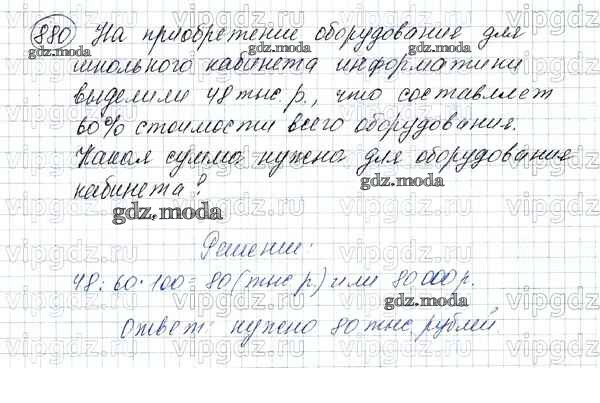 880 На приобретение оборудования для
школьного кабинета информатики
выделили 48 тыс р., что составляет
60% стоимости всего оборудования.
Какая сумма нужна для оборудования
кабинета?
Решение:
48:60·100=80(тыс р.) или 80 000 р.
Ответ: нужно 80 тыс. рублей